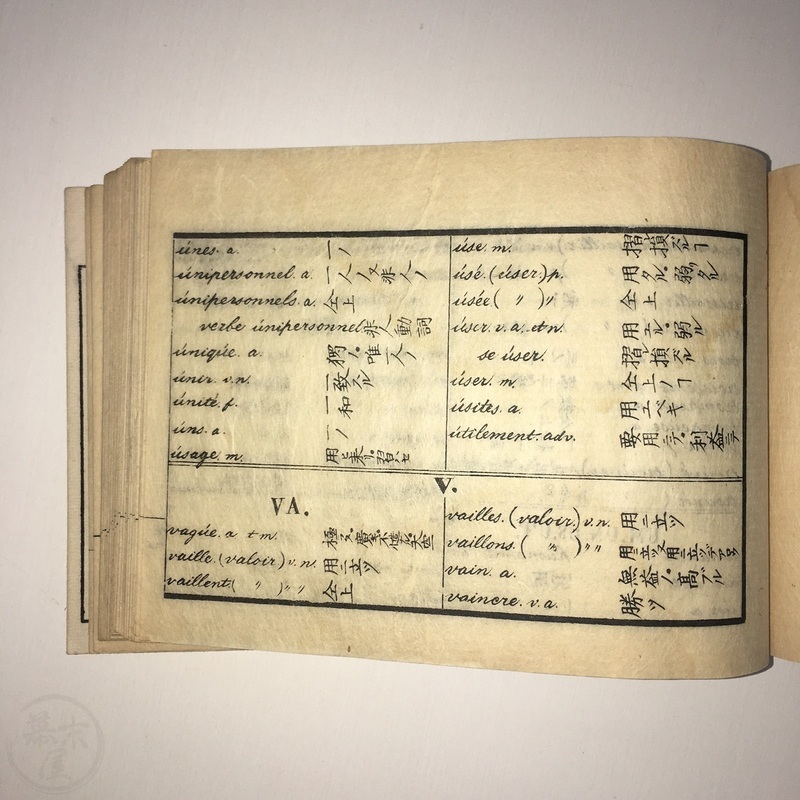 únes. a. 一ノ
únipersonnel. a. 一人ノ又非人ノ
únipersonnels. a. 仝上
verbe únipersonnel 非人動詞
úniqúe. a. 獨ノ・唯一人ノ
únir. v.n. 一致スル
únité. f. 一和
úns. a. 一ノ
úsage. m. 用
úse. m. 摺損スルヿ
úsé. (úser.) p. 用タル・弱タル
úsée ( " ) " 仝上
úser. v. a. et n. 用エル・弱ル
se úser. 摺損スル
úser. m. 仝上ノヿ
úsites. a. 用エベキ
útilement. adv. 要用ニテ・利益ニテ
V.
VA.
vagúe. a et m.
vaille. (valoir) v. n. 用ニ立ツ
vaillent ( " ) " " 仝上
vailles. (valoir.) v. n. 用ニ立ツ
vaillons. ( " ) " " 用ニ立ツ又用ニ立ツデアロウ
vain. a. 無益ノ・高ブル
vaincre. v. a. 勝ツ